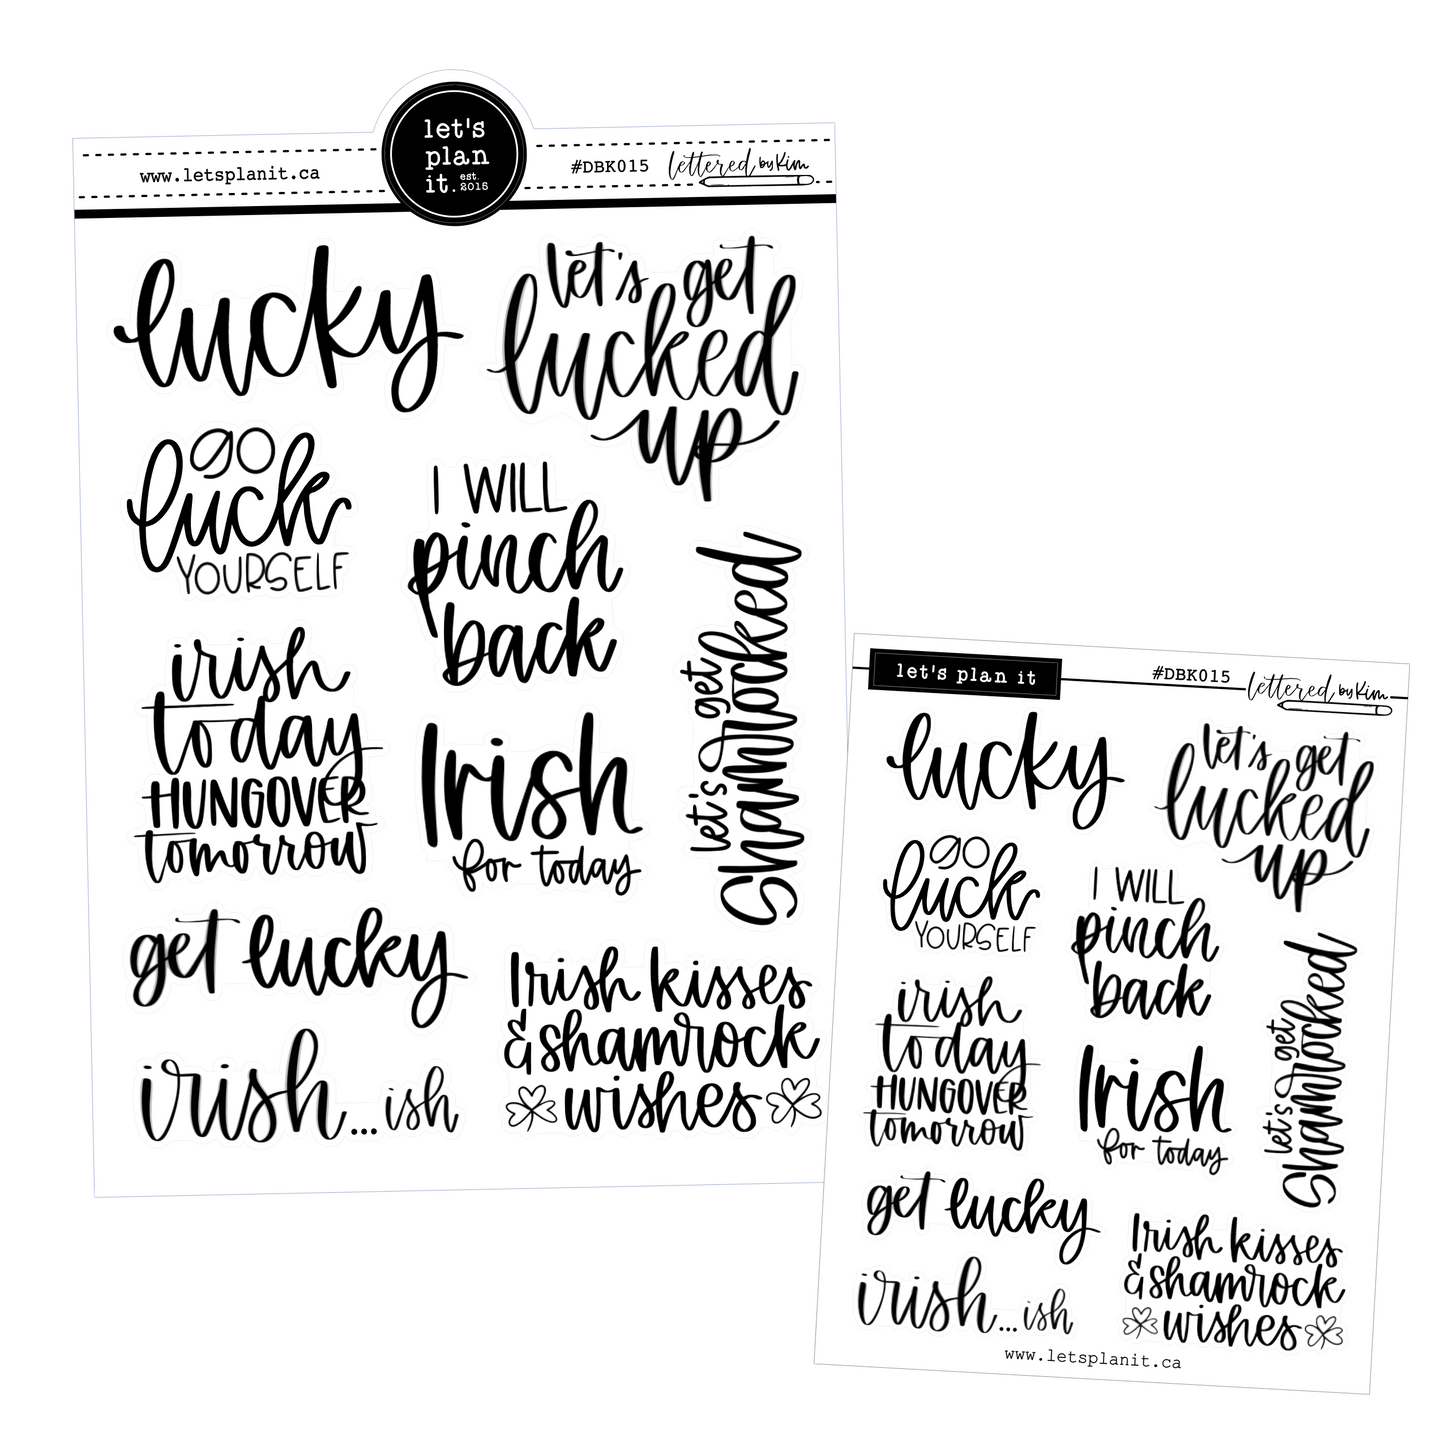 let's
plan
it. est. 2015
www.letsplanit.ca
#DBK015
lettered by Kim
lucky
let's get
lucked
up
go
luck
YOURSELF
I WILL
pinch
back
let's get
Shamrocked
irish
today
HUNGOVER
tomorrow
Irish
for today
get lucky
Irish kisses
& shamrock
wishes
irish...ish
let's plan it
#DBK015
lettered by Kim
lucky
let's get
lucked
up
go
luck
YOURSELF
I WILL
pinch
back
let's get
Shamrocked
irish
today
HUNGOVER
tomorrow
Irish
for today
get lucky
Irish kisses
& shamrock
wishes
irish...ish
www.letsplanit.ca